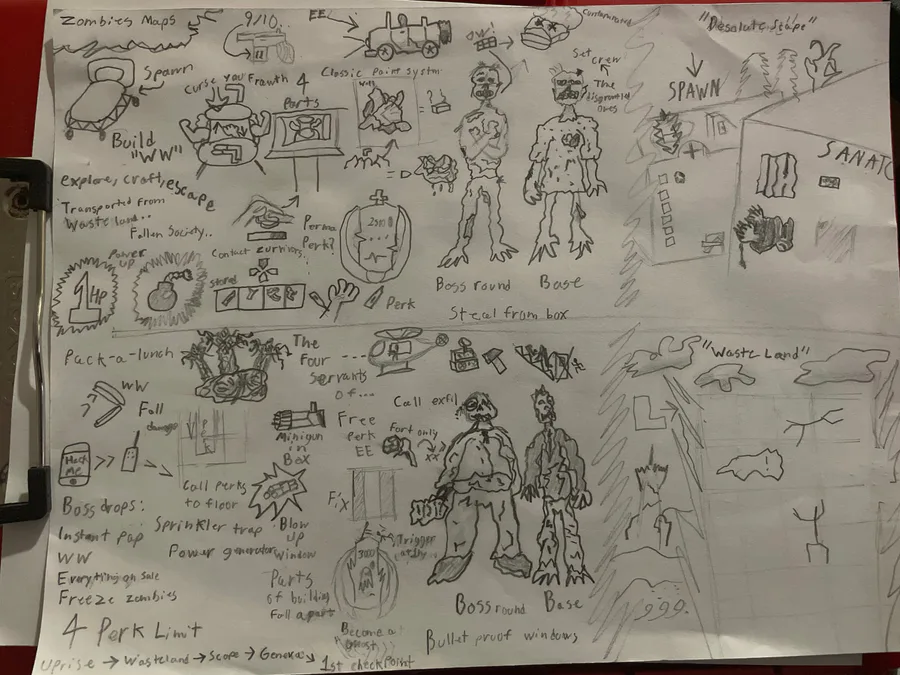 Zombies Maps
9/10..
EE
Contaminated
"Desolate Scape"
Spawn
Curse you Frauth
4
Parts
Classic Point System
Wall
= ?
OW!
Set
crew
The
disgruntled
ones
SPAWN
SANATO
Build
"WW"
explore, craft, escape
Transported from
Waste land..
Fallen Society..
Contact Survivors
Perma
Perk?
2500
Power
UP
1 HP
Stored
Perk
Boss round
Base
Steal from box
Pack-a-lunch
The
Four
Servants
of...
"Waste Land"
WW
?
Fall
damage
Minigun
in
Box
Free
Perk
EE
Call exfil
Fort only
xx
Hack
Me
>>
Call perks
to floor
Fix
Boss drops:
Instant pap
WW
Everything on sale
Freeze zombies
Sprinkler trap
Power generator
Blow
up
window
Trigger
3000
Parts
of building
Fall apart
Become a
Boss round
Base
???.
4 Perk Limit
Bullet proof windows
Uprise → Wasteland → Scope → General
1st checkpoint